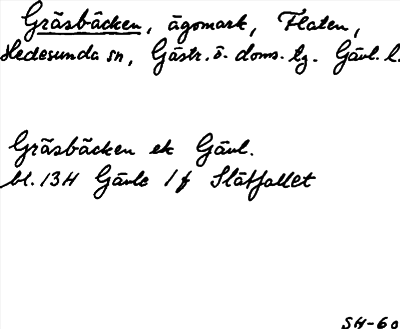 Gräsbäcken, ägomark, Flaten,
Hedesunda sn, Gästr. ö. doms. tg. Gävl. l.
Gräsbäcken ek Gävl.
bl. 13H Gävle 1f Slätfallet
SH-60